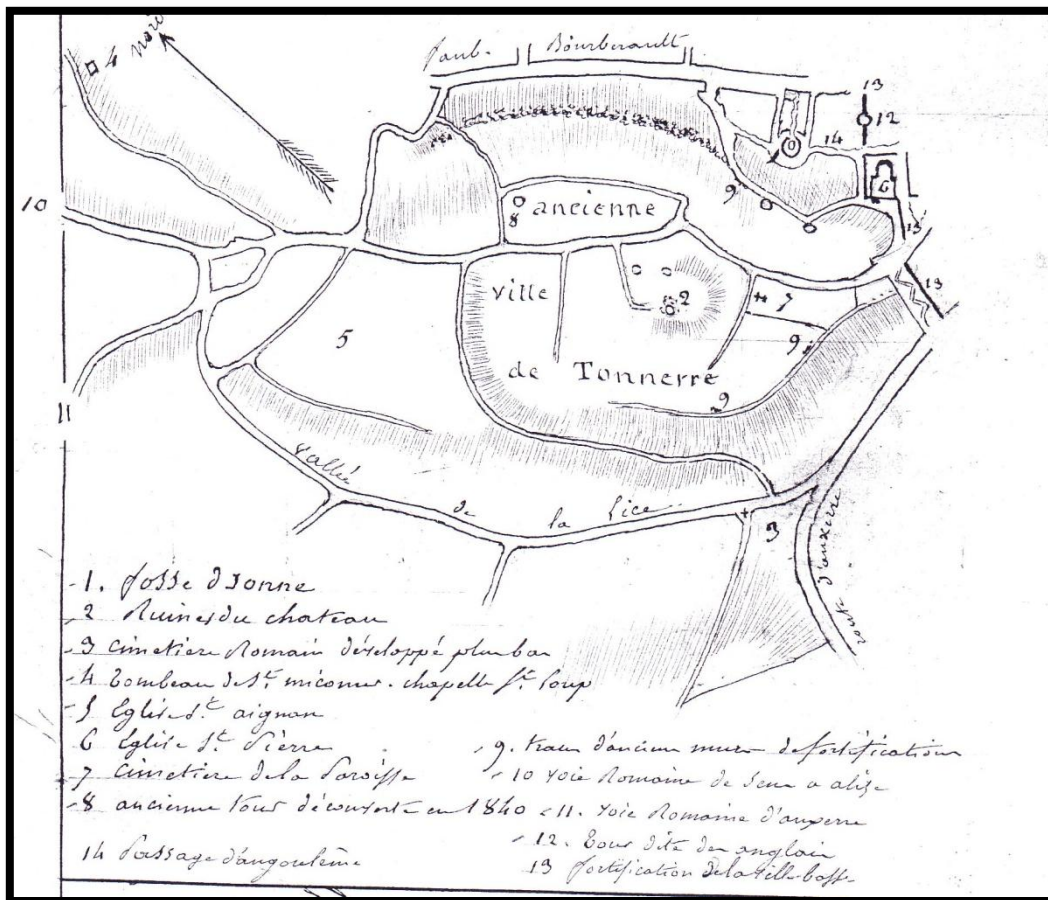 nord
faub. Bourberault
4
13
12
14
10
9
6
8 ancienne
13
13
ville
2
7
5
9
de Tonnerre
9
11
vallée de la Lice
3
route d'auxerre
1. fosse dionne
2 Ruines du chateau
3 Cimetiere Romain développé plus bas
4 Tombeau de St. micomer. chapelle St. Loup
5 Eglise St. aignan
6 Eglise St. Pierre
7 Cimetiere de la Paroisse
8 ancienne tour découverte en 1840
14 Passage d'angoulême
9. traces d'anciens murs de fortifications
10 voie Romaine de Sens a alise
11. voie Romaine d'auxerre
12. Tour dite des anglais
13 fortification de la ville basse